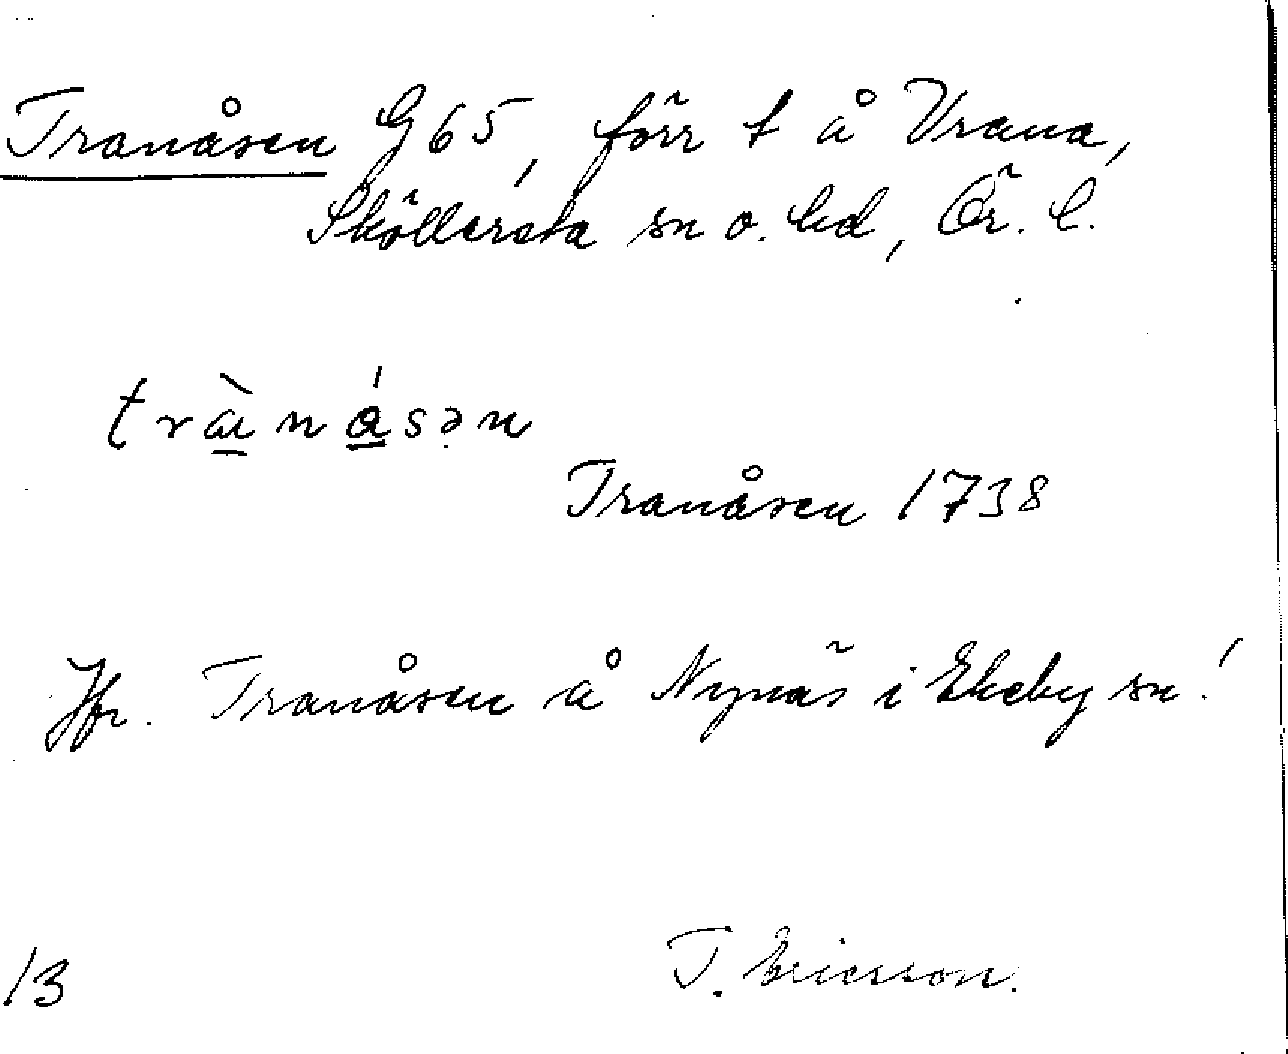 Tranåsen G65, förr t å Vrana,
Sköllersta sn o. hd, Ör. l.
trànásən
Tranåsen 1738
Jfr. Tranåsen å Nynäs i Ekeby sn!
T. Ericsson.
13